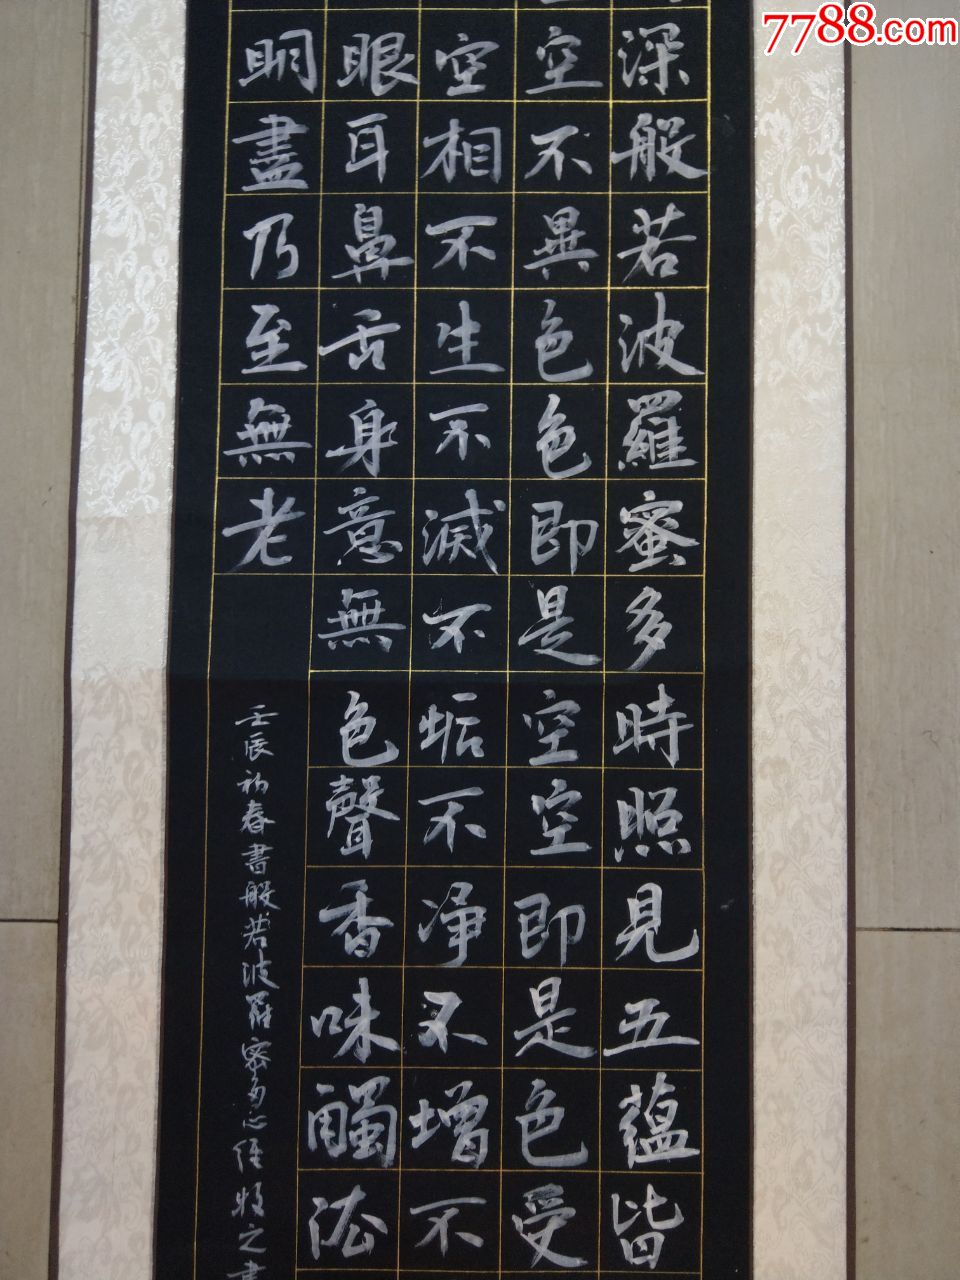 7788.com
深般若波羅蜜多時照見五蘊皆
空不異色色即是空空即是色受
空相不生不滅不垢不净不增不
眼耳鼻舌身意無色聲香味觸法
明盡乃至無老
壬辰初春書般若波羅密多心經